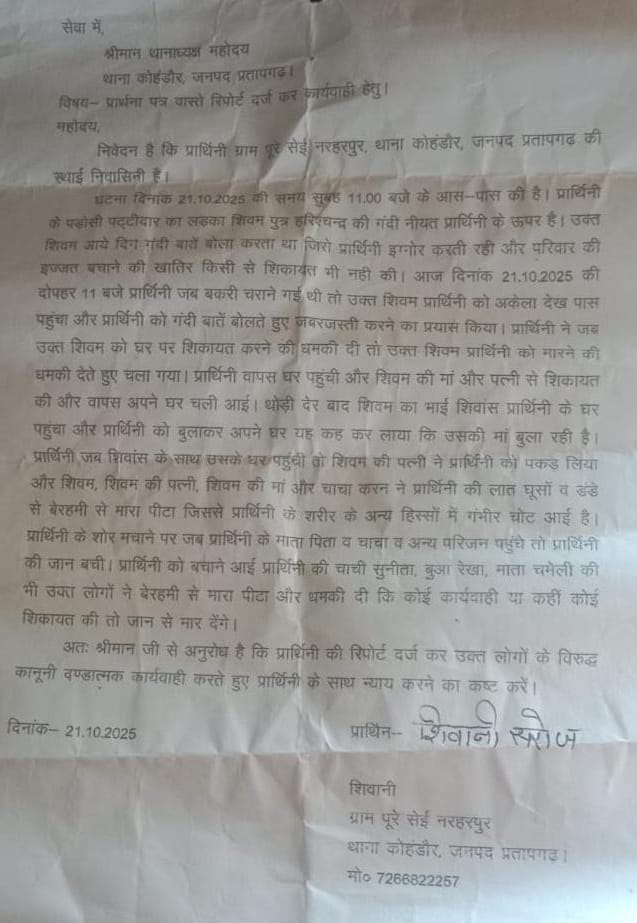 सेवा में,
श्रीमान थानाध्यक्ष महोदय
थाना कोहंडौर, जनपद प्रतापगढ़।
विषय– प्रार्थना पत्र वास्ते रिपोर्ट दर्ज कर कार्यवाही हेतु।
महोदय,
निवेदन है कि प्रार्थिनी ग्राम पूरे सेई नरहरपुर, थाना कोहंडौर, जनपद प्रतापगढ़ की
स्थाई निवासिनी है।
घटना दिनांक 21.10.2025 की समय सुबह 11.00 बजे के आस–पास की है। प्रार्थिनी
के पडोसी पद्टीदार का लडका शिवम पुत्र हरिश्चन्द्र की गंदी नीयत प्रार्थिनी के ऊपर है। उक्त
शिवम आये दिन गंदी बातें बोला करता था जिसे प्रार्थिनी इग्नोर करती रही और परिवार की
इज्जत बचाने की खातिर किसी से शिकायत भी नही की। आज दिनांक 21.10.2025 की
दोपहर 11 बजे प्रार्थिनी जब बकरी चराने गई थी तो उक्त शिवम प्रार्थिनी को अकेला देख पास
पहुंचा और प्रार्थिनी को गंदी बातें बोलते हुए जबरजस्ती करने का प्रयास किया। प्रार्थिनी ने जब
उक्त शिवम को घर पर शिकायत करने की धमकी दी तो उक्त शिवम प्रार्थिनी को मारने की
धमकी देते हुए चला गया। प्रार्थिनी वापस घर पहुंची और शिवम की मां और पत्नी से शिकायत
की और वापस अपने घर चली आई। थोड़ी देर बाद शिवम का भाई शिवांस प्रार्थिनी के घर
पहुंचा और प्रार्थिनी को बुलाकर अपने घर यह कह कर लाया कि उसकी मां बुला रही है।
प्रार्थिनी जब शिवांस के साथ उसके घर पहुंची तो शिवम की पत्नी ने प्रार्थिनी को पकड़ लिया
और शिवम, शिवम की पत्नी, शिवम की मां और चाचा करन ने प्रार्थिनी की लात घूसों व डंडे
से बेरहमी से मारा पीटा जिससे प्रार्थिनी के शरीर के अन्य हिस्सों में गंभीर चोट आई है।
प्रार्थिनी के शोर मचाने पर जब प्रार्थिनी के माता पिता व चाचा व अन्य परिजन पहुंचे तो प्रार्थिनी
की जान बची। प्रार्थिनी को बचाने आई प्रार्थिनी की चाची सुनीता, बुआ रेखा, माता चमेली की
भी उक्त लोगों ने बेरहमी से मारा पीटा और धमकी दी कि कोई कार्यवाही या कहीं कोई
शिकायत की तो जान से मार देंगे।
अतः श्रीमान जी से अनुरोध है कि प्रार्थिनी की रिपोर्ट दर्ज कर उक्त लोगों के विरुद्ध
कानूनी दण्डात्मक कार्यवाही करते हुए प्रार्थिनी के साथ न्याय करने का कष्ट करें।
दिनांक– 21.10.2025 प्रार्थिन– शिवानी सरोज
शिवानी
ग्राम पूरे सेई नरहरपुर
थाना कोहंडौर, जनपद प्रतापगढ़।
मो० 7266822257